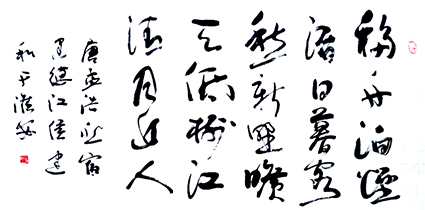 移舟泊煙
渚日暮客
愁新野曠
天低樹江
清月近人
唐孟浩然宿
建德江侯建
和于淮安